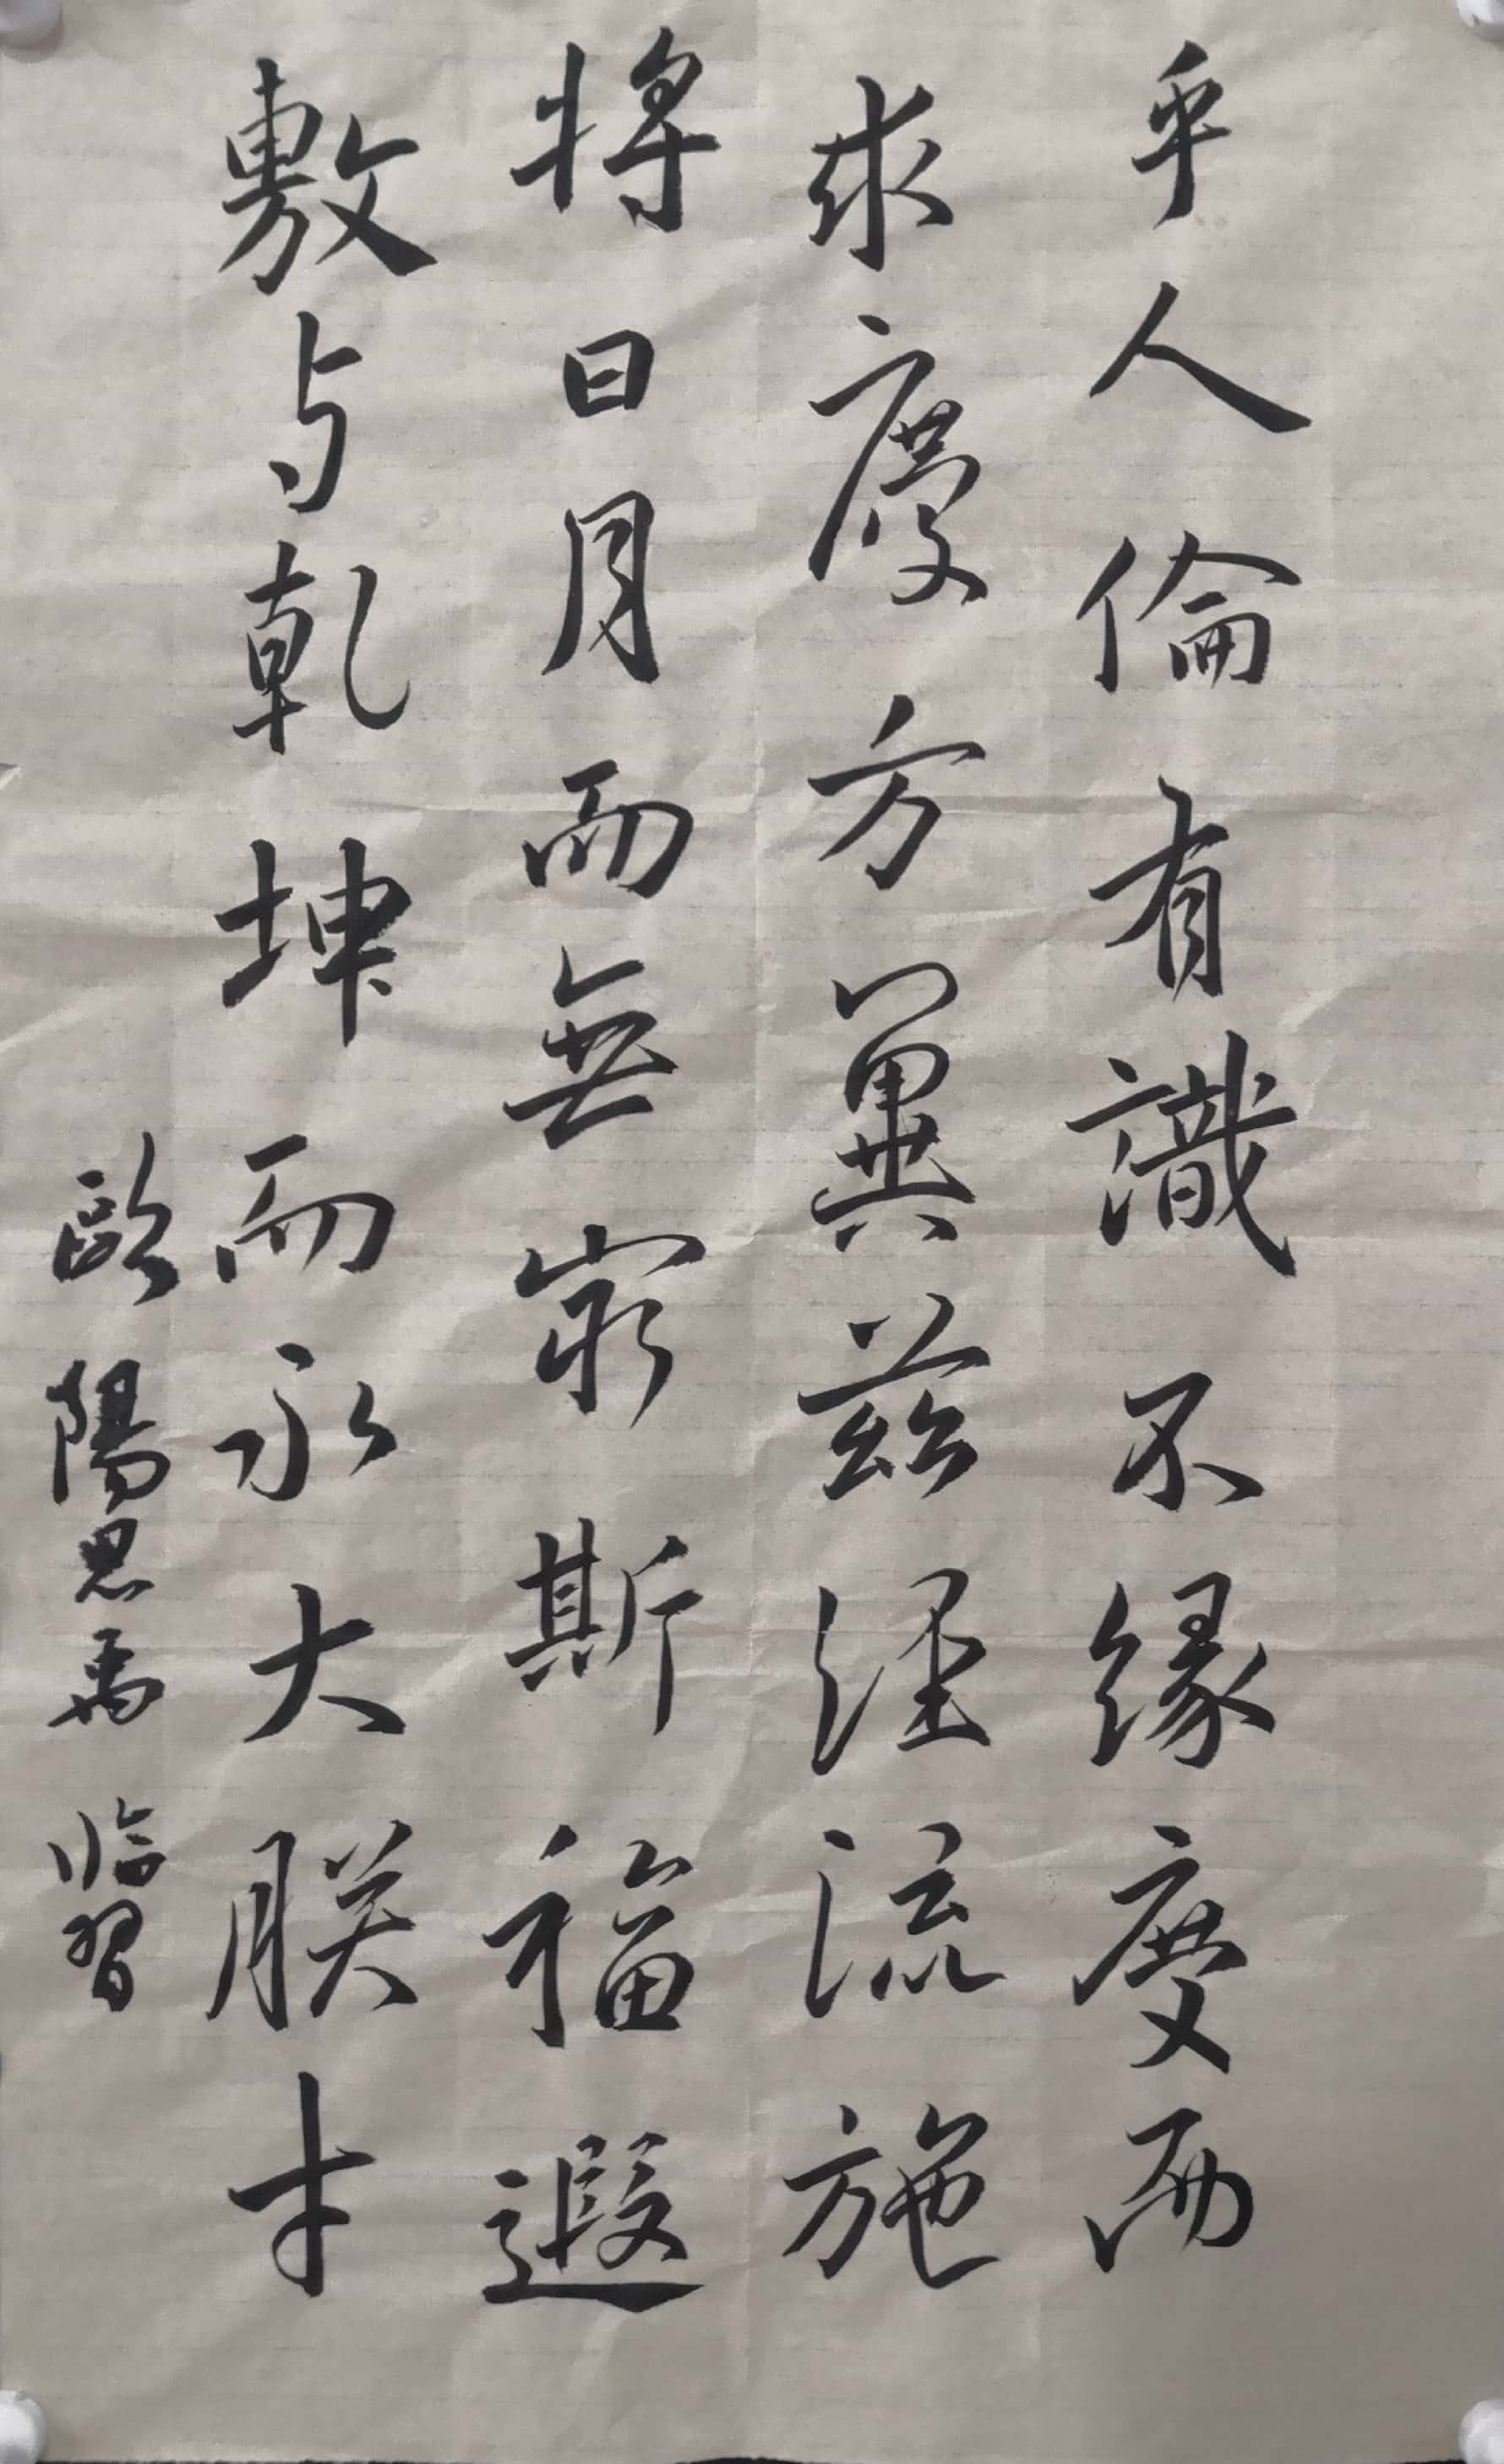 乎人倫有識不緣慶而
求慶方冀茲經流施
將日月而無窮斯福遐
敷与乾坤而永大朕才
歐陽思臨習